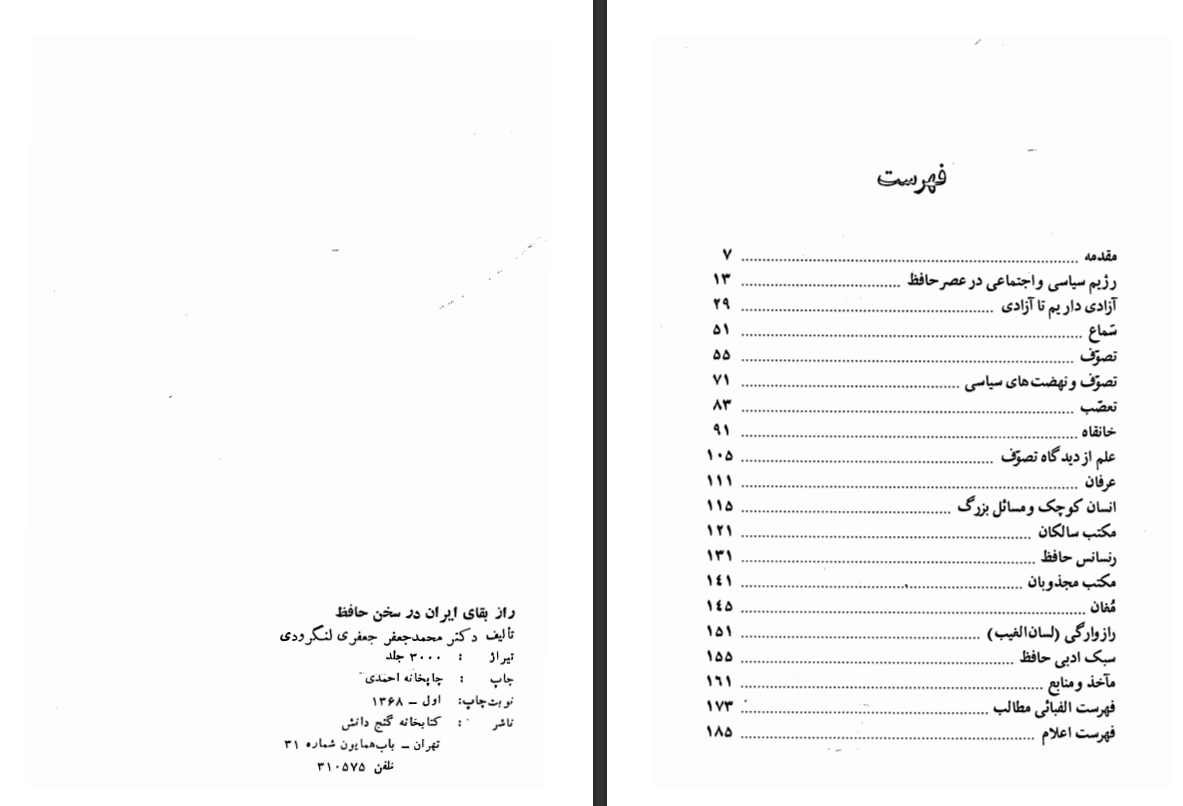 راز بقای ایران در سخن حافظ
تألیف دکتر محمدجعفر جعفری لنگرودی
تیراژ : ۳۰۰۰ جلد
چاپ : چاپخانه احمدی
نوبت چاپ: اول – ۱۳۶۸
ناشر : کتابخانه گنج دانش
تهران – باب همایون شماره ۳۱
تلفن ۳۱۰۵۷۵
فهرست
مقدمه ........ ۷
رژیم سیاسی و اجتماعی در عصر حافظ ........ ۱۳
آزادی داریم تا آزادی ........ ۲۹
سَماع ........ ۵۱
تصوّف ........ ۵۵
تصوّف و نهضت‌های سیاسی ........ ۷۱
تعصّب ........ ۸۳
خانقاه ........ ۹۱
علم از دیدگاه تصوّف ........ ۱۰۵
عرفان ........ ۱۱۱
انسان کوچک و مسائل بزرگ ........ ۱۱۵
مکتب سالکان ........ ۱۲۱
رنسانس حافظ ........ ۱۳۱
مکتب مجذوبان ........ ۱٤۱
مُغان ........ ۱٤۵
رازوارگی (لسان‌الغیب) ........ ۱۵۱
سبک ادبی حافظ ........ ۱۵۵
مآخذ و منابع ........ ۱٦۱
فهرست الفبائی مطالب ........ ۱۷۳
فهرست اعلام ........ ۱۸۵